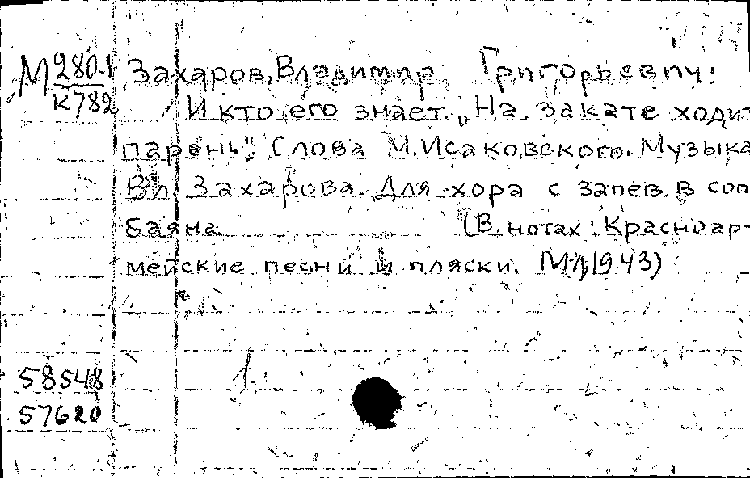 М 280-1 Захаров, Владимир Григорьевич.
К782 И кто его знает. „На закате ходит
парень". Слова М. Исаковского. Музыка
Вл. Захарова. Для хора с запев. в соп
баяна (В нотах: Красноар-
мейские песни и пляски. М., 1943)
58548
57620